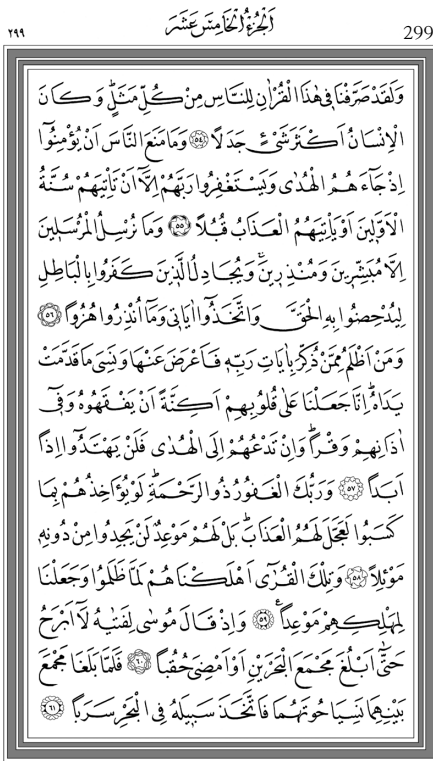 299 اَلْجُزْءُ الْخَامِسَ عَشَرَ ٢٩٩
وَلَقَدْ صَرَّفْنَا فٖى هٰذَا الْقُرْاٰنِ لِلنَّاسِ مِنْ كُلِّ مَثَلٍؕ وَكَانَ
الْاِنْسَانُ اَكْثَرَ شَىْءٍ جَدَلًا ﴿٥٤﴾ وَمَا مَنَعَ النَّاسَ اَنْ يُؤْمِنُٓوا
اِذْ جَٓاءَهُمُ الْهُدٰى وَيَسْتَغْفِرُوا رَبَّهُمْ اِلَّٓا اَنْ تَاْتِيَهُمْ سُنَّةُ
الْاَوَّلٖينَ اَوْ يَاْتِيَهُمُ الْعَذَابُ قُبُلًا ﴿٥٥﴾ وَمَا نُرْسِلُ الْمُرْسَلٖينَ
اِلَّا مُبَشِّرٖينَ وَمُنْذِرٖينَۚ وَيُجَادِلُ الَّذٖينَ كَفَرُوا بِالْبَاطِلِ
لِيُدْحِضُوا بِهِ الْحَقَّ وَاتَّخَذُٓوا اٰيَاتٖى وَمَٓا اُنْذِرُوا هُزُوًا ﴿٥٦﴾
وَمَنْ اَظْلَمُ مِمَّنْ ذُكِّرَ بِاٰيَاتِ رَبِّهٖ فَاَعْرَضَ عَنْهَا وَنَسِىَ مَا قَدَّمَتْ
يَدَاهُؕ اِنَّا جَعَلْنَا عَلٰى قُلُوبِهِمْ اَكِنَّةً اَنْ يَفْقَهُوهُ وَفٖٓى
اٰذَانِهِمْ وَقْرًاؕ وَاِنْ تَدْعُهُمْ اِلَى الْهُدٰى فَلَنْ يَهْتَدُٓوا اِذًا
اَبَدًا ﴿٥٧﴾ وَرَبُّكَ الْغَفُورُ ذُو الرَّحْمَةِؕ لَوْ يُؤَاخِذُهُمْ بِمَا
كَسَبُوا لَعَجَّلَ لَهُمُ الْعَذَابَؕ بَلْ لَهُمْ مَوْعِدٌ لَنْ يَجِدُوا مِنْ دُونِهٖ
مَوْئِلًا ﴿٥٨﴾ وَتِلْكَ الْقُرٰٓى اَهْلَكْنَاهُمْ لَمَّا ظَلَمُوا وَجَعَلْنَا
لِمَهْلِكِهِمْ مَوْعِدًاࣖ ﴿٥٩﴾ وَاِذْ قَالَ مُوسٰى لِفَتٰيهُ لَٓا اَبْرَحُ
حَتّٰٓى اَبْلُغَ مَجْمَعَ الْبَحْرَيْنِ اَوْ اَمْضِىَ حُقُبًا ﴿٦٠﴾ فَلَمَّا بَلَغَا مَجْمَعَ
بَيْنِهِمَا نَسِيَا حُوتَهُمَا فَاتَّخَذَ سَبٖيلَهُ فِى الْبَحْرِ سَرَبًا ﴿٦١﴾